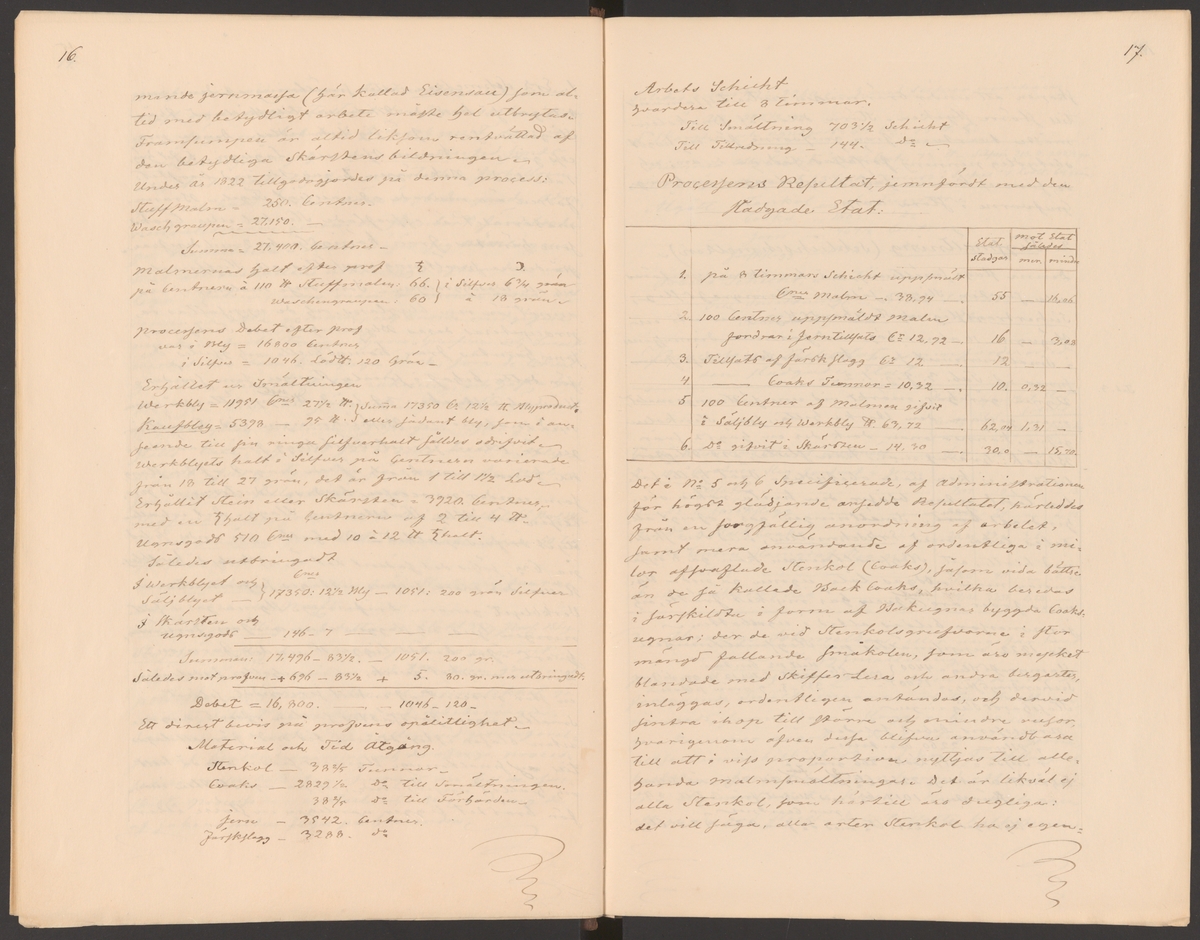 16.
minde jernmassa (här kallad Eisensau) som al-
tid med betydligt arbete måste hel utbrytas.
Framsumpen är altid liksom rentvättad af
den betydliga Skärstensbildningen.
Under år 1822 tillgodogjordes på denna process:
Stuff Malm = 250. Centner.
Waschgraupen = 27,150. —
Summa = 27,400. Centner —
Malmernas halt efter prof
på Centnern à 110 ℔ Stuffmalm: 66. i Silfver 6 3/4 grän
Waschengraupen: 60 à 18 grän.
Processens Debet efter prof
var i Bly = 16800 Centner
i Silfver = 1046. Lödtt. 120 Grän —
Erhållet ur Smältningen
Werkbly = 11951 Cner 27 1/2 ℔. Suma 17350 Cr 12 1/2 ℔. Blyproduct.
Kaufbley = 5398 — 95 ℔. eller sådant bly, som i an-
seende till sin ringa silfverhalt såldes odrifvit.
Werkblyets halt i Silfver på Centnern varierade
från 18 till 27 grän, det är från 1 till 1 1/2 Lod.
Erhållit Stein eller Skärsten = 3920 Centner,
med en halt på Centnern af 2 till 4 ℔.
Ugnsgods 510 Cner med 10 à 12 ℔ halt.
Således utbringadt
I Werkblyet och
Säljblyet — Cner 17350: 12 1/2 Bly — 1051: 200 grän Silfver
I Skärsten och
Ugnsgods — 146 — 7 — — —
Summan 17,496 — 83 1/2. — 1051. 200 gr.
Således mot profven + 696 — 83 1/2 + 5. 80. gr. mer utbringadt.
Debet = 16,800. — — 1046 — 120 —
Ett direct bevis på profvens opålitlighet.
Material och Tid Åtgång.
Stenkol — 38 Tunnor —
Coaks — 2829 1/2 Do till Smältningen.
38 Do till Förhärden —
Jern — 3542. Centner.
Färskslagg — 3288. do
17.
Arbets Schicht
hvardera till 8 timmar.
Till Smältning 703 1/2 Schicht
Till Tillredning — 144. Do
Processens Resultat, jemnfördt med den
stadgade Etat:
Etat stadgar
mot Etat såldes
mer. mindre
1. på 8 timmars Schicht uppsmält
Cner Malm — 38,94 —. 55 — 16,06
2. 100 Centner uppsmält Malm
fordrar i Jerntillsats Cr 12,92 —. 16 — 3,08
3. Tillsats af färskslagg Cr 12 —. 12 — —
4. — Coaks Tunnor = 10,32 —. 10. 0,32 —
5 100 Centner af Malmen gifvit
i Säljbly och Werkbly ℔. 63,72 —. 62,41 1,31 —
6. Do gifvit i Skärsten — 14.30 —. 30,0 — 15,70.
Det i No 5 och 6 Specificerade, af Administrationen
för högst glädjande ansedde Resultatet, härleddes
från en sorgfällig anordning af arbetet,
samt mera användande af ordentliga i mi-
lor afsvaflade Stenkol (Coaks), såsom vida bättre
än de så kallade Back Coaks, hvilka beredas
i särskildta i form af Bakugnar byggda Coaks-
ugnar; der de vid Stenkolsgrufvorne i stor
mängd fallande Småkolen, som äro mycket
blandade med Skiffer Lera och andra bergarter,
inläggas, ordentligen antändas, och dervid
sintra ihop till större och mindre rusor,
hvarigenom äfven dessa blifva användbara
till att i viss proportion nyttjas till alle-
handa malmsmältningar. Det är likväl ej
alla Stenkol, som härtill äro dugliga:
det vill säga, alla arter Stenkol ha ej egen=